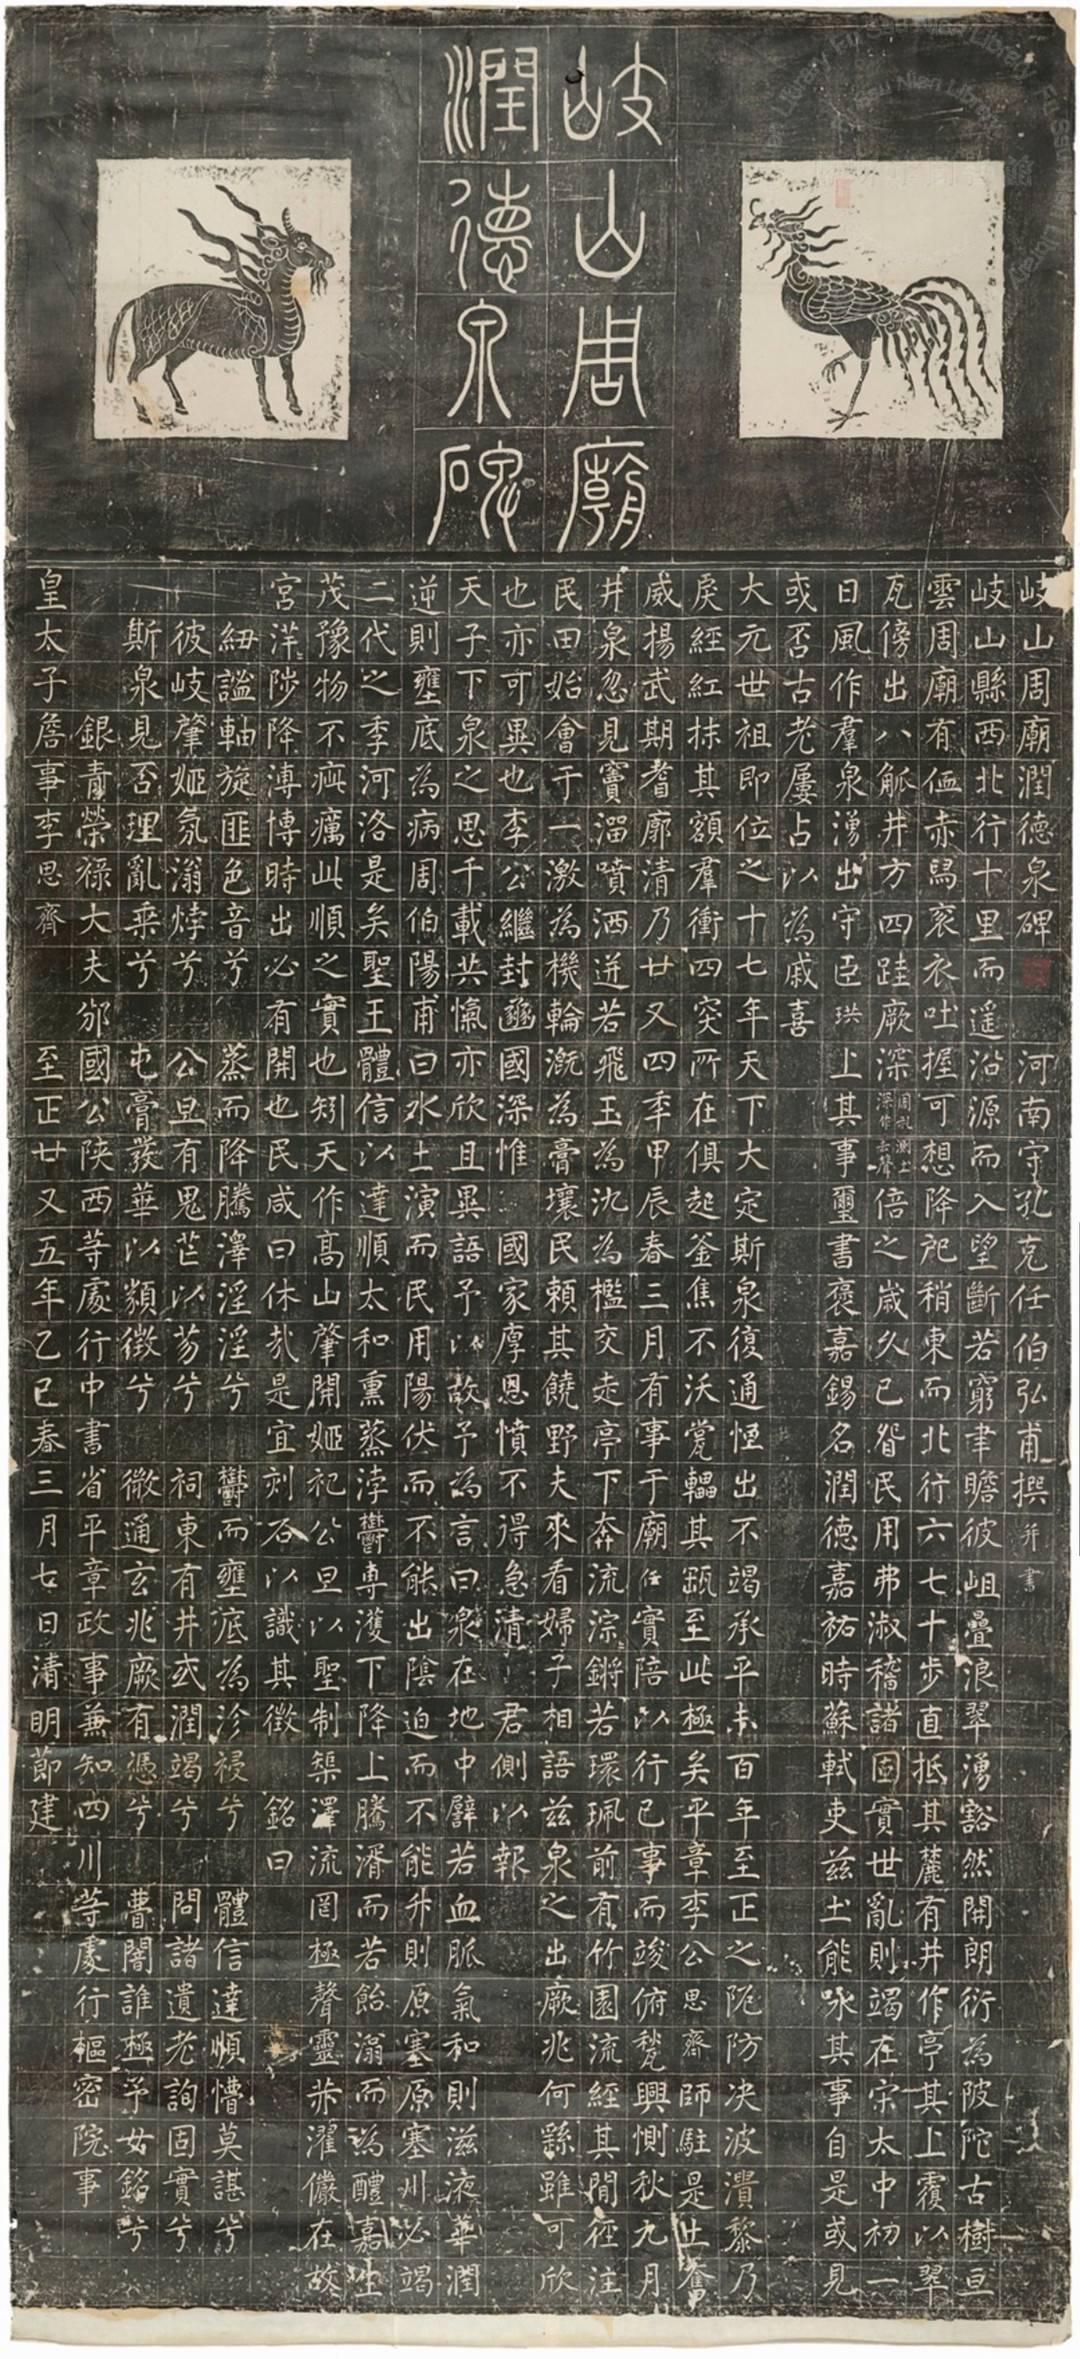 岐山周廟
潤德泉碑
岐山周廟潤德泉碑 河南守孔克任伯弘甫撰并書
岐山縣西北行十里而遥沿源而入望斷若窮聿瞻彼岨疊浪翠湧豁然開朗衍為陂陀古樹亘
雲周廟有侐赤舄衮衣吐握可想降祀稍東而北行六七十步直抵其麓有井作亭其上覆以翠
瓦傍出八觚井方四跬厥深周礼測土深作去聲倍之歲久已眢民用弗淑稽諸固實世亂則竭在宋太中初一
日風作羣泉湧出守臣珙上其事璽書褒嘉錫名潤德嘉祐時蘇軾吏茲土能咏其事自是或見
或否古老屢占以為戚喜
大元世祖即位之十七年天下大定斯泉復通恆出不竭承平未百年至正之阨防决波潰黎乃
戾經紅抹其額羣衝四突所在俱起釜焦不沃甍轠其瓴至此極矣平章李公思齊師駐是土奮
威揚武期耆廓清乃廿又四年甲辰春三月有事于廟任實陪以行已事而竣俯甃興惻秋九月
井泉忽見竇溜噴洒迸若飛玉為氿為檻交走亭下奔流淙鏘若環珮前有竹園流經其閒徑注
民田始會于一激為機輪溉為膏壤民賴其饒野夫來看婦子相語茲泉之出厥兆何繇雖可欣
也亦可異也李公繼封國深惟 國家厚恩憤不得急清 君側以報
天子下泉之思千載共愾亦欣且異語予以故予為言曰泉在地中譬若血脈氣和則滋液華潤
逆則壅底為病周伯陽甫曰水土演而民用陽伏而不能出陰迫而不能升則原塞原塞川必竭
二代之季河洛是矣聖王體信以達順太和熏蒸浡鬱專濩下降上騰湑而若飴滃而為醴嘉生
茂豫物不疵癘此順之實也矧天作高山肇開姬祀公旦以聖制澤流罔極聲靈赤濯儼在故
宮洋陟降溥博時出必有開也民咸曰休哉是宜刻石以識其徵 銘曰
紐謐軸旋匪色音兮 蒸而降騰澤淫淫兮 鬱而壅底為沴祲兮 體信達順慒莫諶兮
彼岐肇姬氛滃悖兮 公旦有鬼芘以芴兮 祠東有井或潤竭兮 問諸遺老詢固實兮
斯泉見否理亂乘兮 屯膏發華以纇徵兮 徹通玄兆厥有憑兮 瞢闇誰極予女銘兮
銀青榮祿大夫邠國公陕西等處行中書省平章政事兼知四川等處行樞密院事
皇太子詹事李思齊 至正廿又五年乙巳春三月七日清明節建